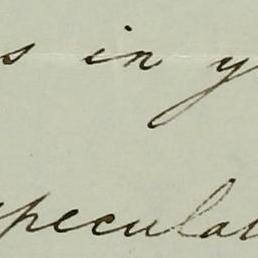 s in y
specula